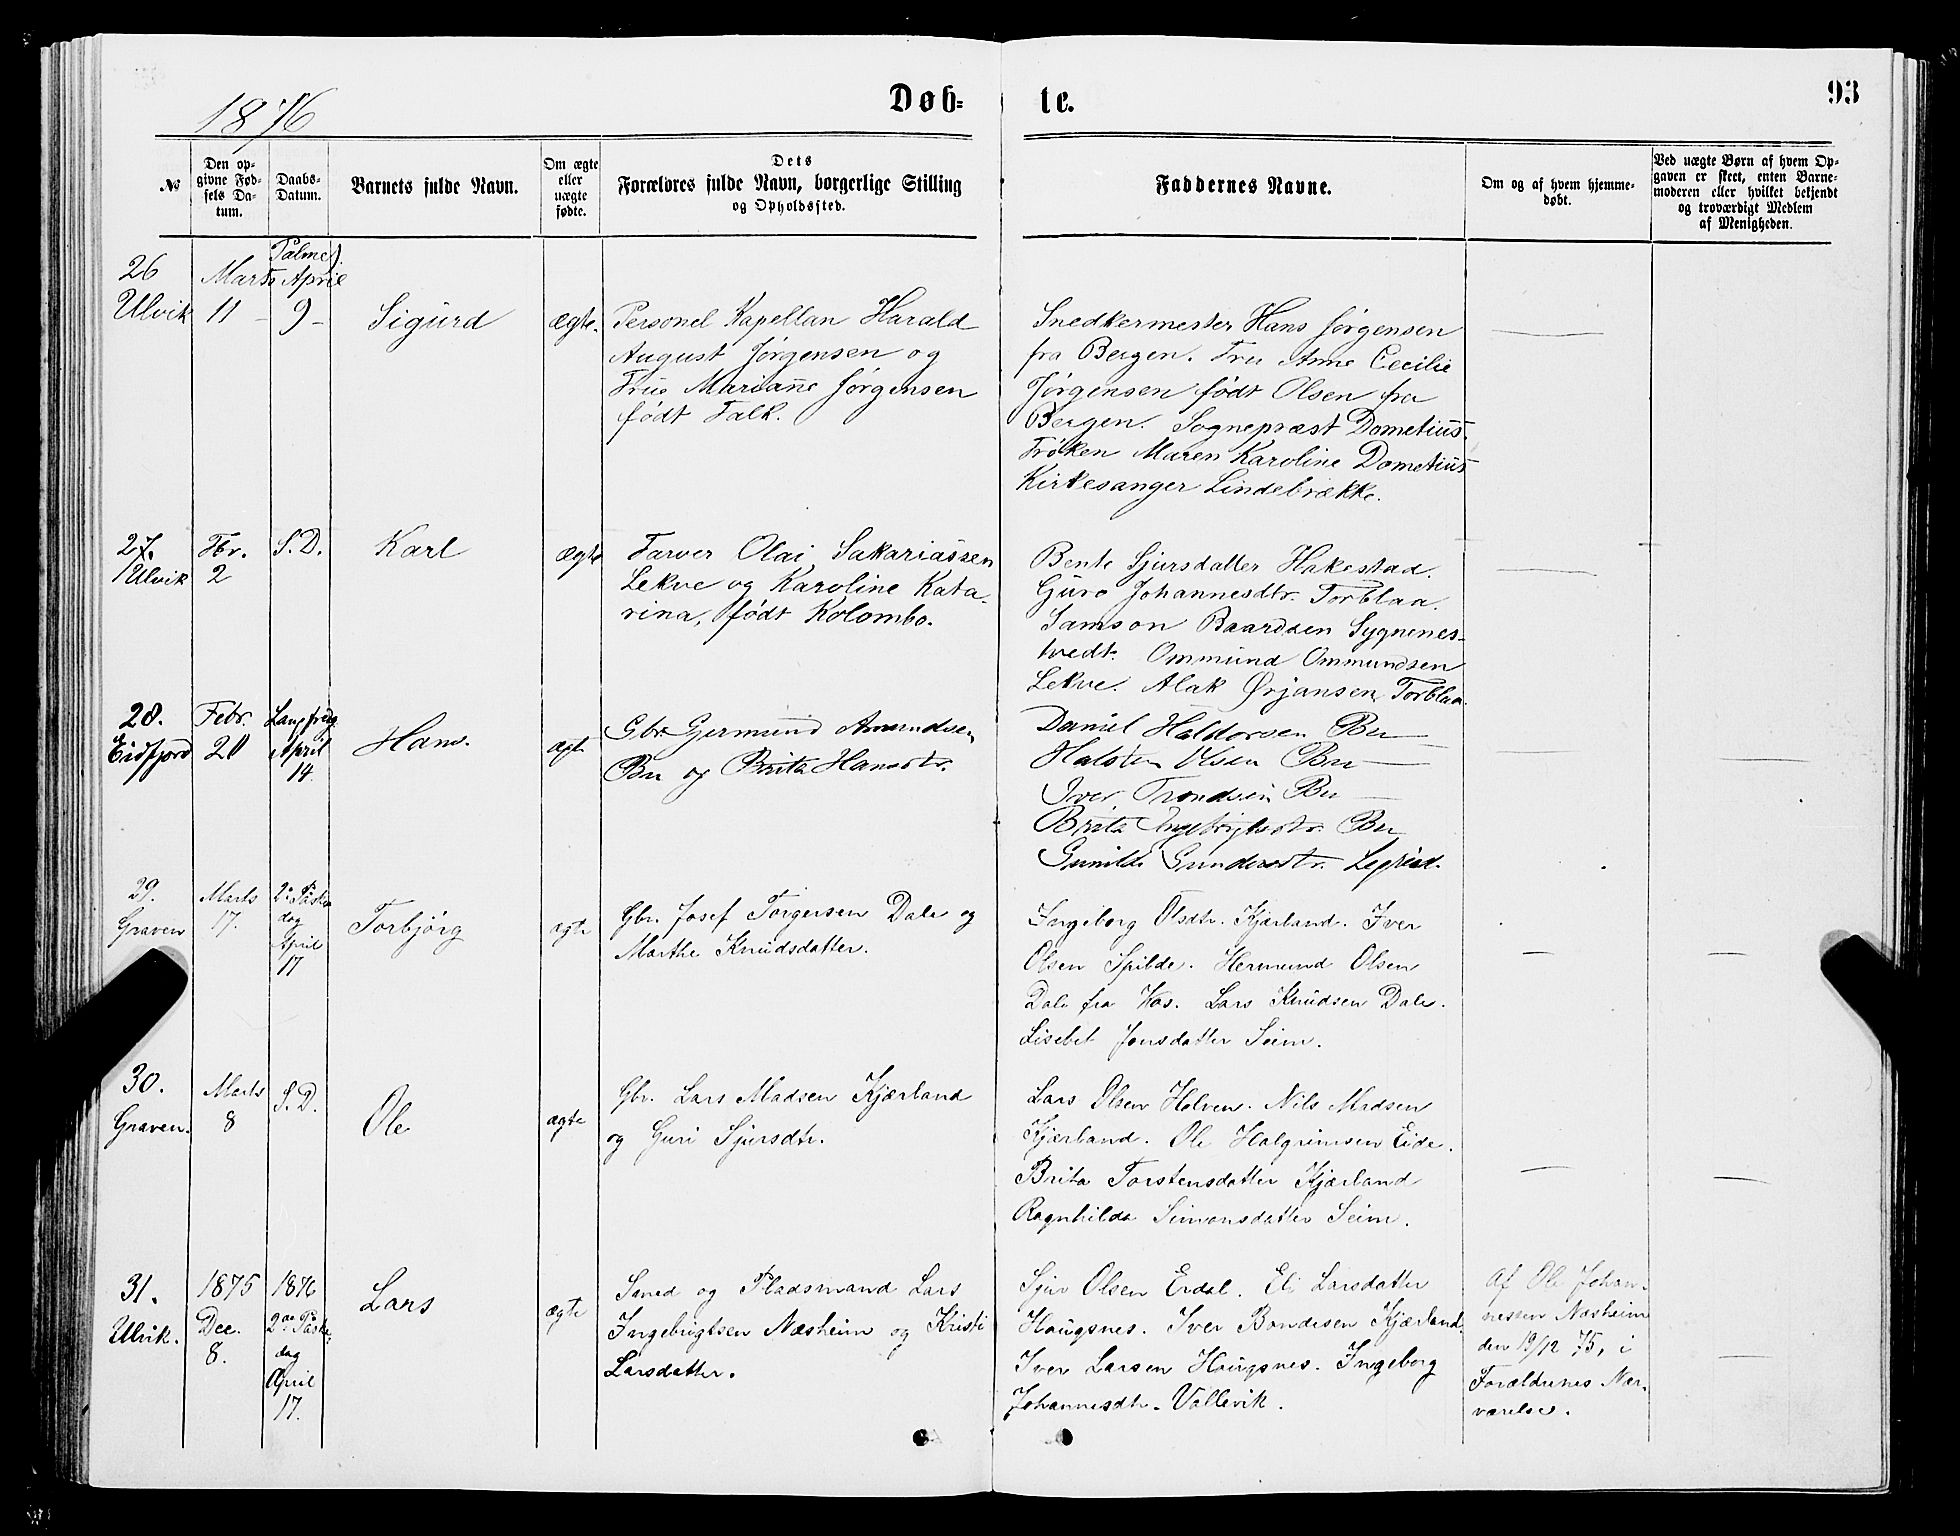 1876
Døb-
te.
93
№
Den op-
givne Fød-
sels Da-
tum.
Daabs-
Datum.
Barnets fulde Navn.
Om ægte
eller
uægte
fødte.
Dets
Forældres fulde Navn, borgerlige Stilling
og Opholdssted.
Faddernes Navne.
Om og af hvem hjemme-
døbt.
Ved uægte Børn af hvem Op-
gaven er skeet, enten Barne-
moderen eller hvilket bekjendt
og troværdigt Medlem
af Menigheden.
26
Ulvik
Marts
11 -
Palmes.
April
9 -
Sigurd
ægte.
Personel Kapellan Harald
August Jørgensen og
Frue Marianne Jørgensen
født Falk.
Snedkermester Hans Jørgensen
fra Bergen. Fru Anne Cecilie
Jørgensen født Olsen fra
Bergen. Sognepræst Dometius.
Frøken Maren Karoline Dometius
Kirkesanger Lindebrække.
27.
Ulvik
Fbr.
2
S.D.
Karl
ægte
Farver Olai Sakariassen
Lekve og Karoline Kata-
rina, født Kolombo.
Bente Sjursdatter Hakestad.
Guro Johannesdtr. Torblaa.
Samson Baardsen Sygnenes-
tvedt. Ommund Ommundsen
Lekve. Alak Ørjansen Torblaa.
28.
Eidfjord
Febr.
20
Langfredg
April
14.
Hans.
ægte
Gbr. Germund Amundsen
Bu og Brita Hansdtr.
Daniel Haldorsen Bu
Halsten Olsen Bu
Iver Trondsen Bu
Brita Ingebrigtsdtr. Bu
Gunild Gundersdtr. Legreid.
29.
Graven
Marts
17.
2n Paaske
dag
April
17
Torbjørg
ægte
Gbr. Josef Torgersen Dale og
Marthe Knudsdatter.
Ingeborg Olsdtr. Kjærland. Iver
Olsen Spilde. Hermund Olsen
Dale fra Vos. Lars Knudsen Dale.
Lisebet Jonsdatter Seim.
30.
Graven.
Marts
8
S.D.
Ole
ægte
Gbr. Lars Madsen Kjærland
og Guri Sjursdtr.
Lars Olsen Holven. Nils Madsen
Kjærland. Ole Halgrimsen Eide.
Brita Torstensdatter Kjærland
Ragnhilda Simonsdatter Seim.
31.
Ulvik.
1875
Dec.
8.
1876
2den Paaske
dag
April
17.
Lars
ægte
Smed og Pladsmand Lars
Ingebrigtsen Næsheim og Kristi
Larsdatter.
Sjur Olsen Erdal. Eli Larsdatter
Haugsnes. Iver Bondesen Kjærland.
Iver Larsen Haugsnes. Ingeborg
Johannesdtr. Vallevik.
Af Ole Johan-
nessen Næsheim
den 19/12 75, i
Forældrenes Nær-
værelse.